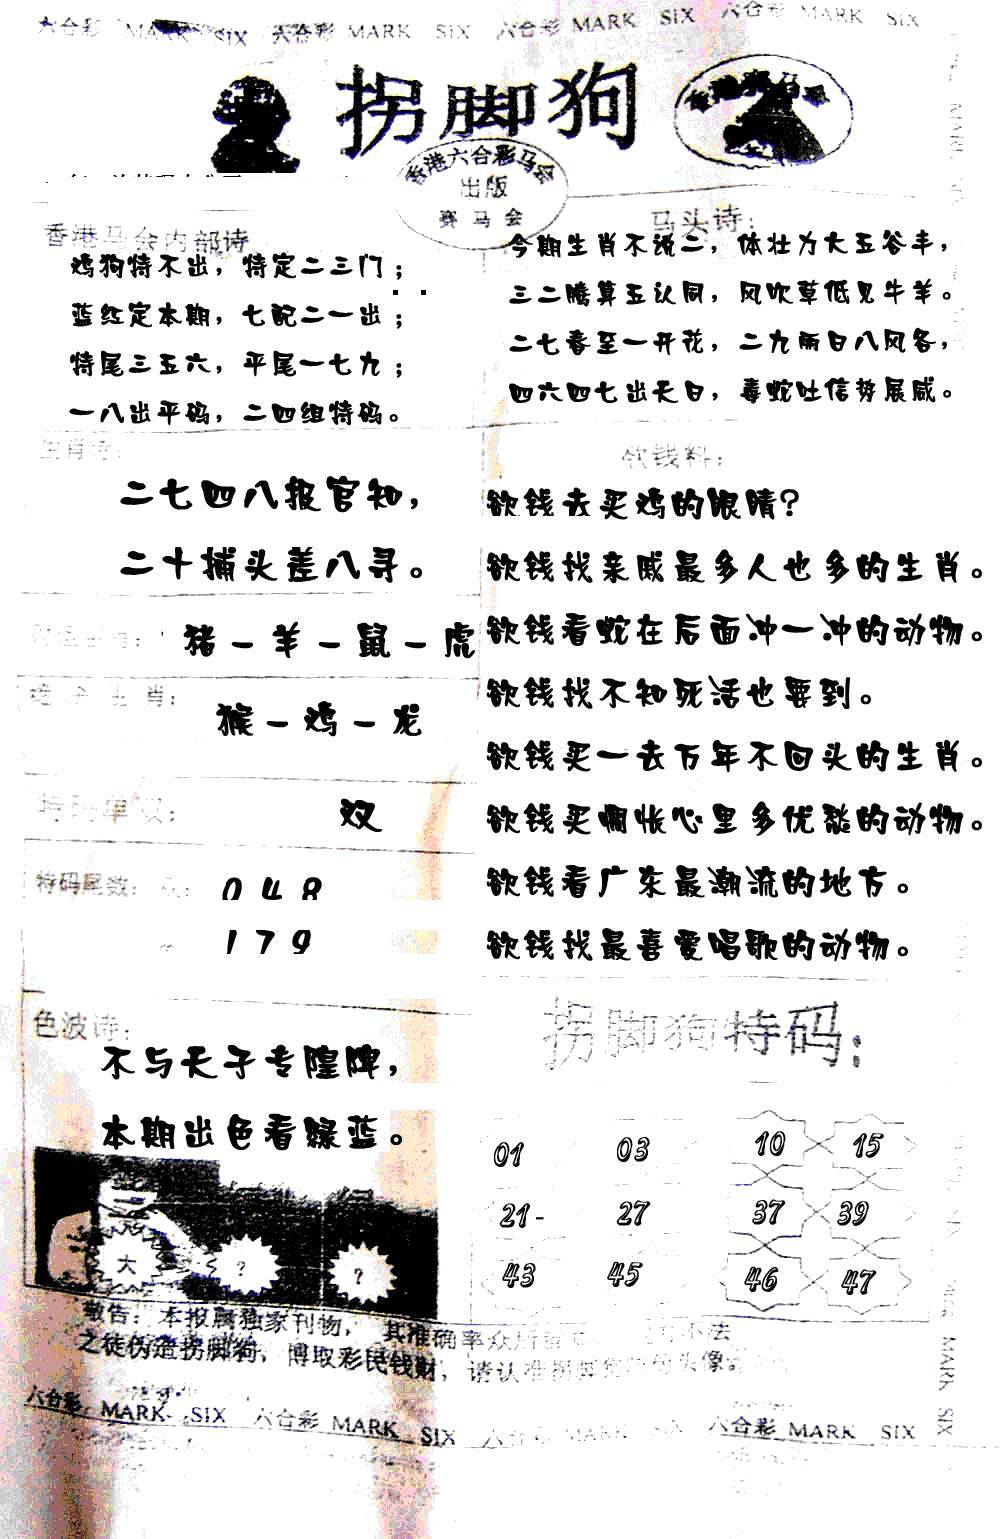 六合彩 MARK SIX 六合彩 MARK SIX 六合彩 MARK SIX 六合彩 MARK SIX
拐脚狗
香港赛马会
香港六合彩马会
出版
赛马会
香港马会内部诗
鸡狗特不出，特定二三门；
蓝红定本期，七配二一出；
特尾三五六，平尾一七九；
一八出平码，二四组特码。
马头诗：
今期生肖不说二，体壮力大五谷丰，
三二腾算五认同，风吹草低见牛羊。
二七春至一开花，二九雨日八风各，
四六四七出天日，毒蛇吐信势展威。
生肖诗：
二七四八报官知，
二十捕头差八寻。
猪－羊－鼠－虎
生肖：
猴－鸡－龙
特码单双：
双
特码尾数：
0 4 8
1 7 9
色波诗：
不与天子专隍牌，
本期出色看绿蓝。
大
?
?
欲钱料：
欲钱去买鸡的眼睛？
欲钱找亲戚最多人也多的生肖。
欲钱看蛇在后面冲一冲的动物。
欲钱找不知死活也要到。
欲钱买一去万年不回头的生肖。
欲钱买惆怅心里多优愁的动物。
欲钱看广东最潮流的地方。
欲钱找最喜爱唱歌的动物。
拐脚狗特码：
01 03 10 15
21- 27 37 39
43 45 46 47
敬告：本报属独家刊物，其准确率众所
不法
之徒伪造拐脚狗，博取彩民钱财，请认准拐脚狗
头像。
六合彩 MARK SIX 六合彩 MARK SIX 六合 MARK SIX 六合彩 MARK SIX
MARK SIX